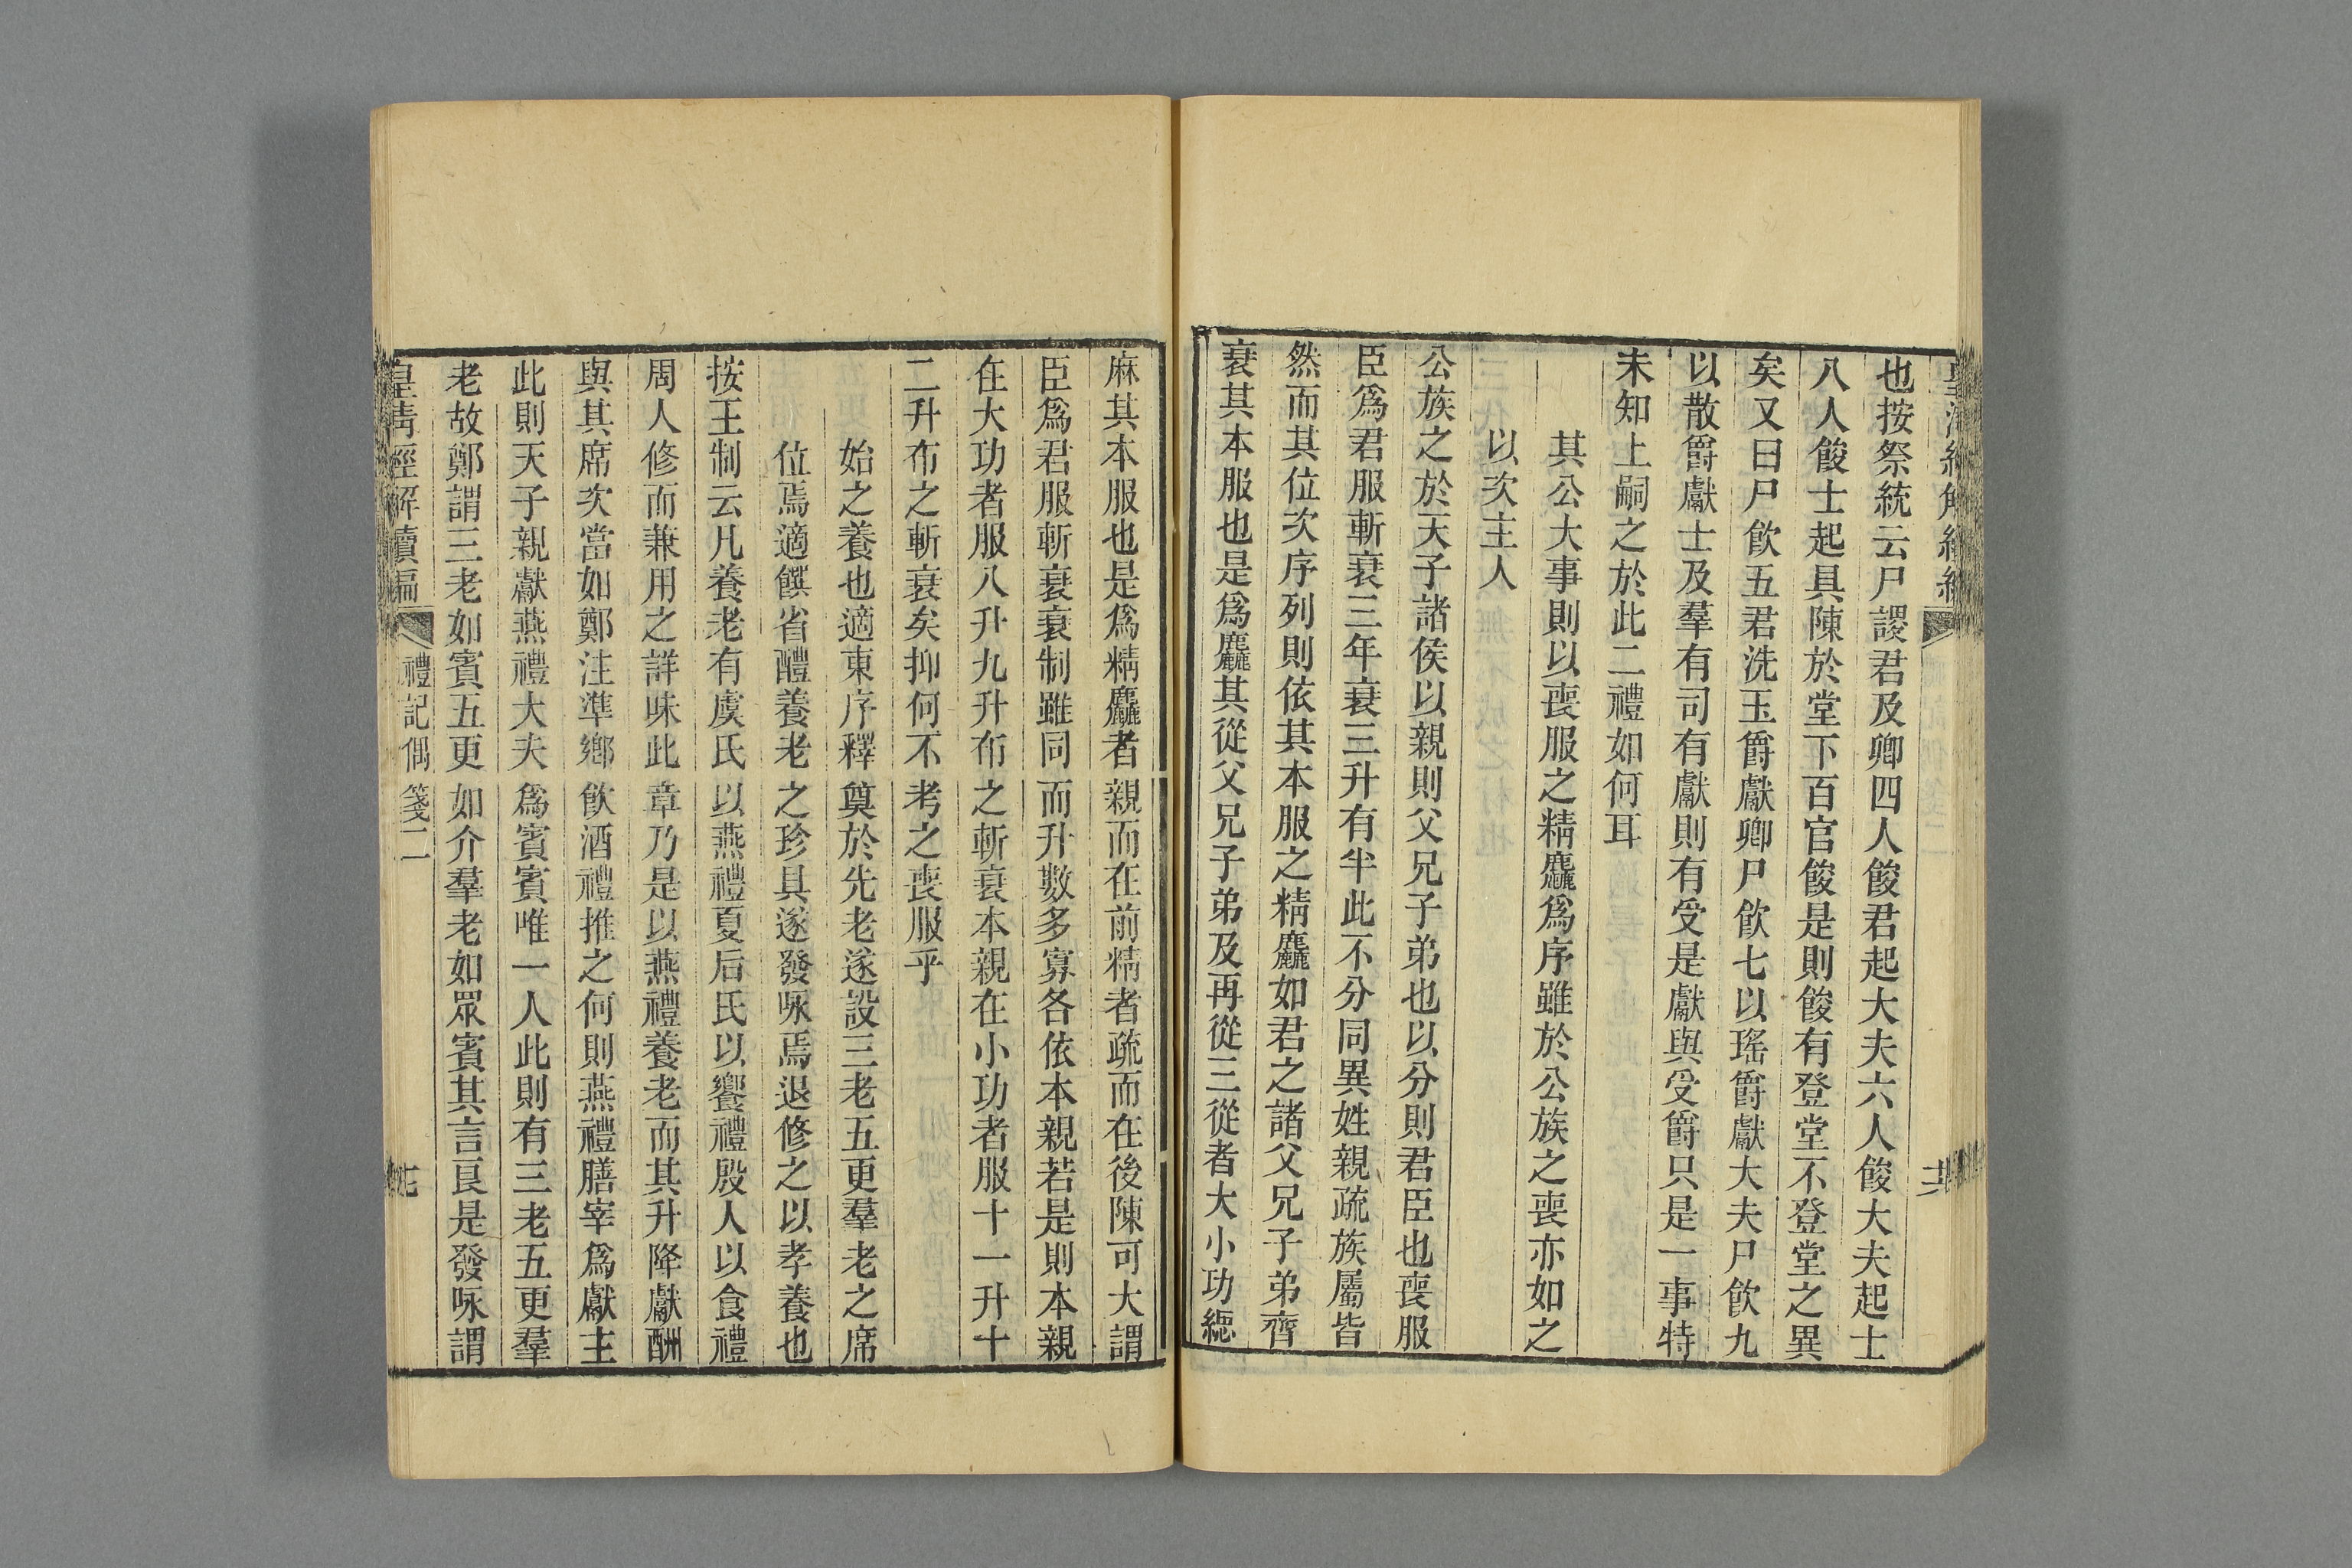 也按祭統云尸謖君及卿四人餕君起大夫六人餕大夫起士
八人餕士起具陳於堂下百官餕是則餕有登堂不登堂之異
矣又曰尸飮五君洗玉爵獻卿尸飮七以瑤爵獻大夫尸飮九
以散爵獻士及羣有司有獻則有受是獻與受爵只是一事特
未知上嗣之於此二禮如何耳
其公大事則以喪服之精麤爲序雖於公族之喪亦如之
以次主人
公族之於天子諸侯以親則父兄子弟也以分則君臣也喪服
臣爲君服斬衰三年衰三升有半此不分同異姓親疏族屬皆
然而其位次序列則依其本服之精麤如君之諸父兄子弟齊
衰其本服也是爲麤其從父兄子弟及再從三從者大小功緦
麻其本服也是爲精麤者親而在前精者疏而在後陳可大謂
臣爲君服斬衰衰制雖同而升數多寡各依本親若是則本親
在大功者服八升九升布之斬衰本親在小功者服十一升十
二升布之斬衰矣抑何不考之喪服乎
始之養也適東序釋奠於先老遂設三老五更羣老之席
位焉適饌省醴養老之珍具遂發咏焉退修之以孝養也
按王制云凡養老有虞氏以燕禮夏后氏以饗禮殷人以食禮
周人修而兼用之詳味此章乃是以燕禮養老而其升降獻酬
與其席次當如鄭注準鄉飮酒禮推之何則燕禮膳宰爲獻主
此則天子親獻燕禮大夫爲賓賓唯一人此則有三老五更羣
老故鄭謂三老如賓五更如介羣老如眾賓其言良是發咏謂
皇淸經解續編 禮記偶箋二